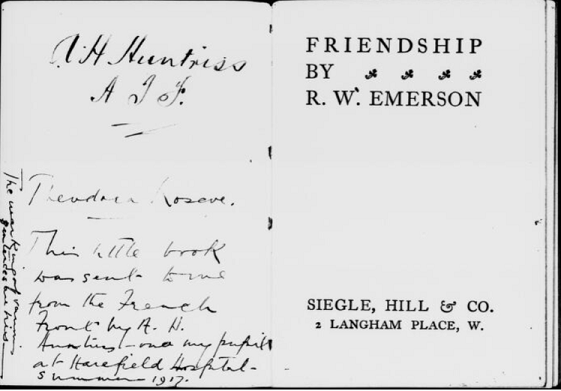 A H Huntriss
A I F.
Theodora Roscoe.
This little book
was sent to me
from the French
Front by A. H.
Huntriss - once my pupil
at Harefield Hospital -
Summer 1917.
The marking of various
sentences
FRIENDSHIP
BY
R. W. EMERSON
SIEGLE, HILL & CO.
2 LANGHAM PLACE, W.